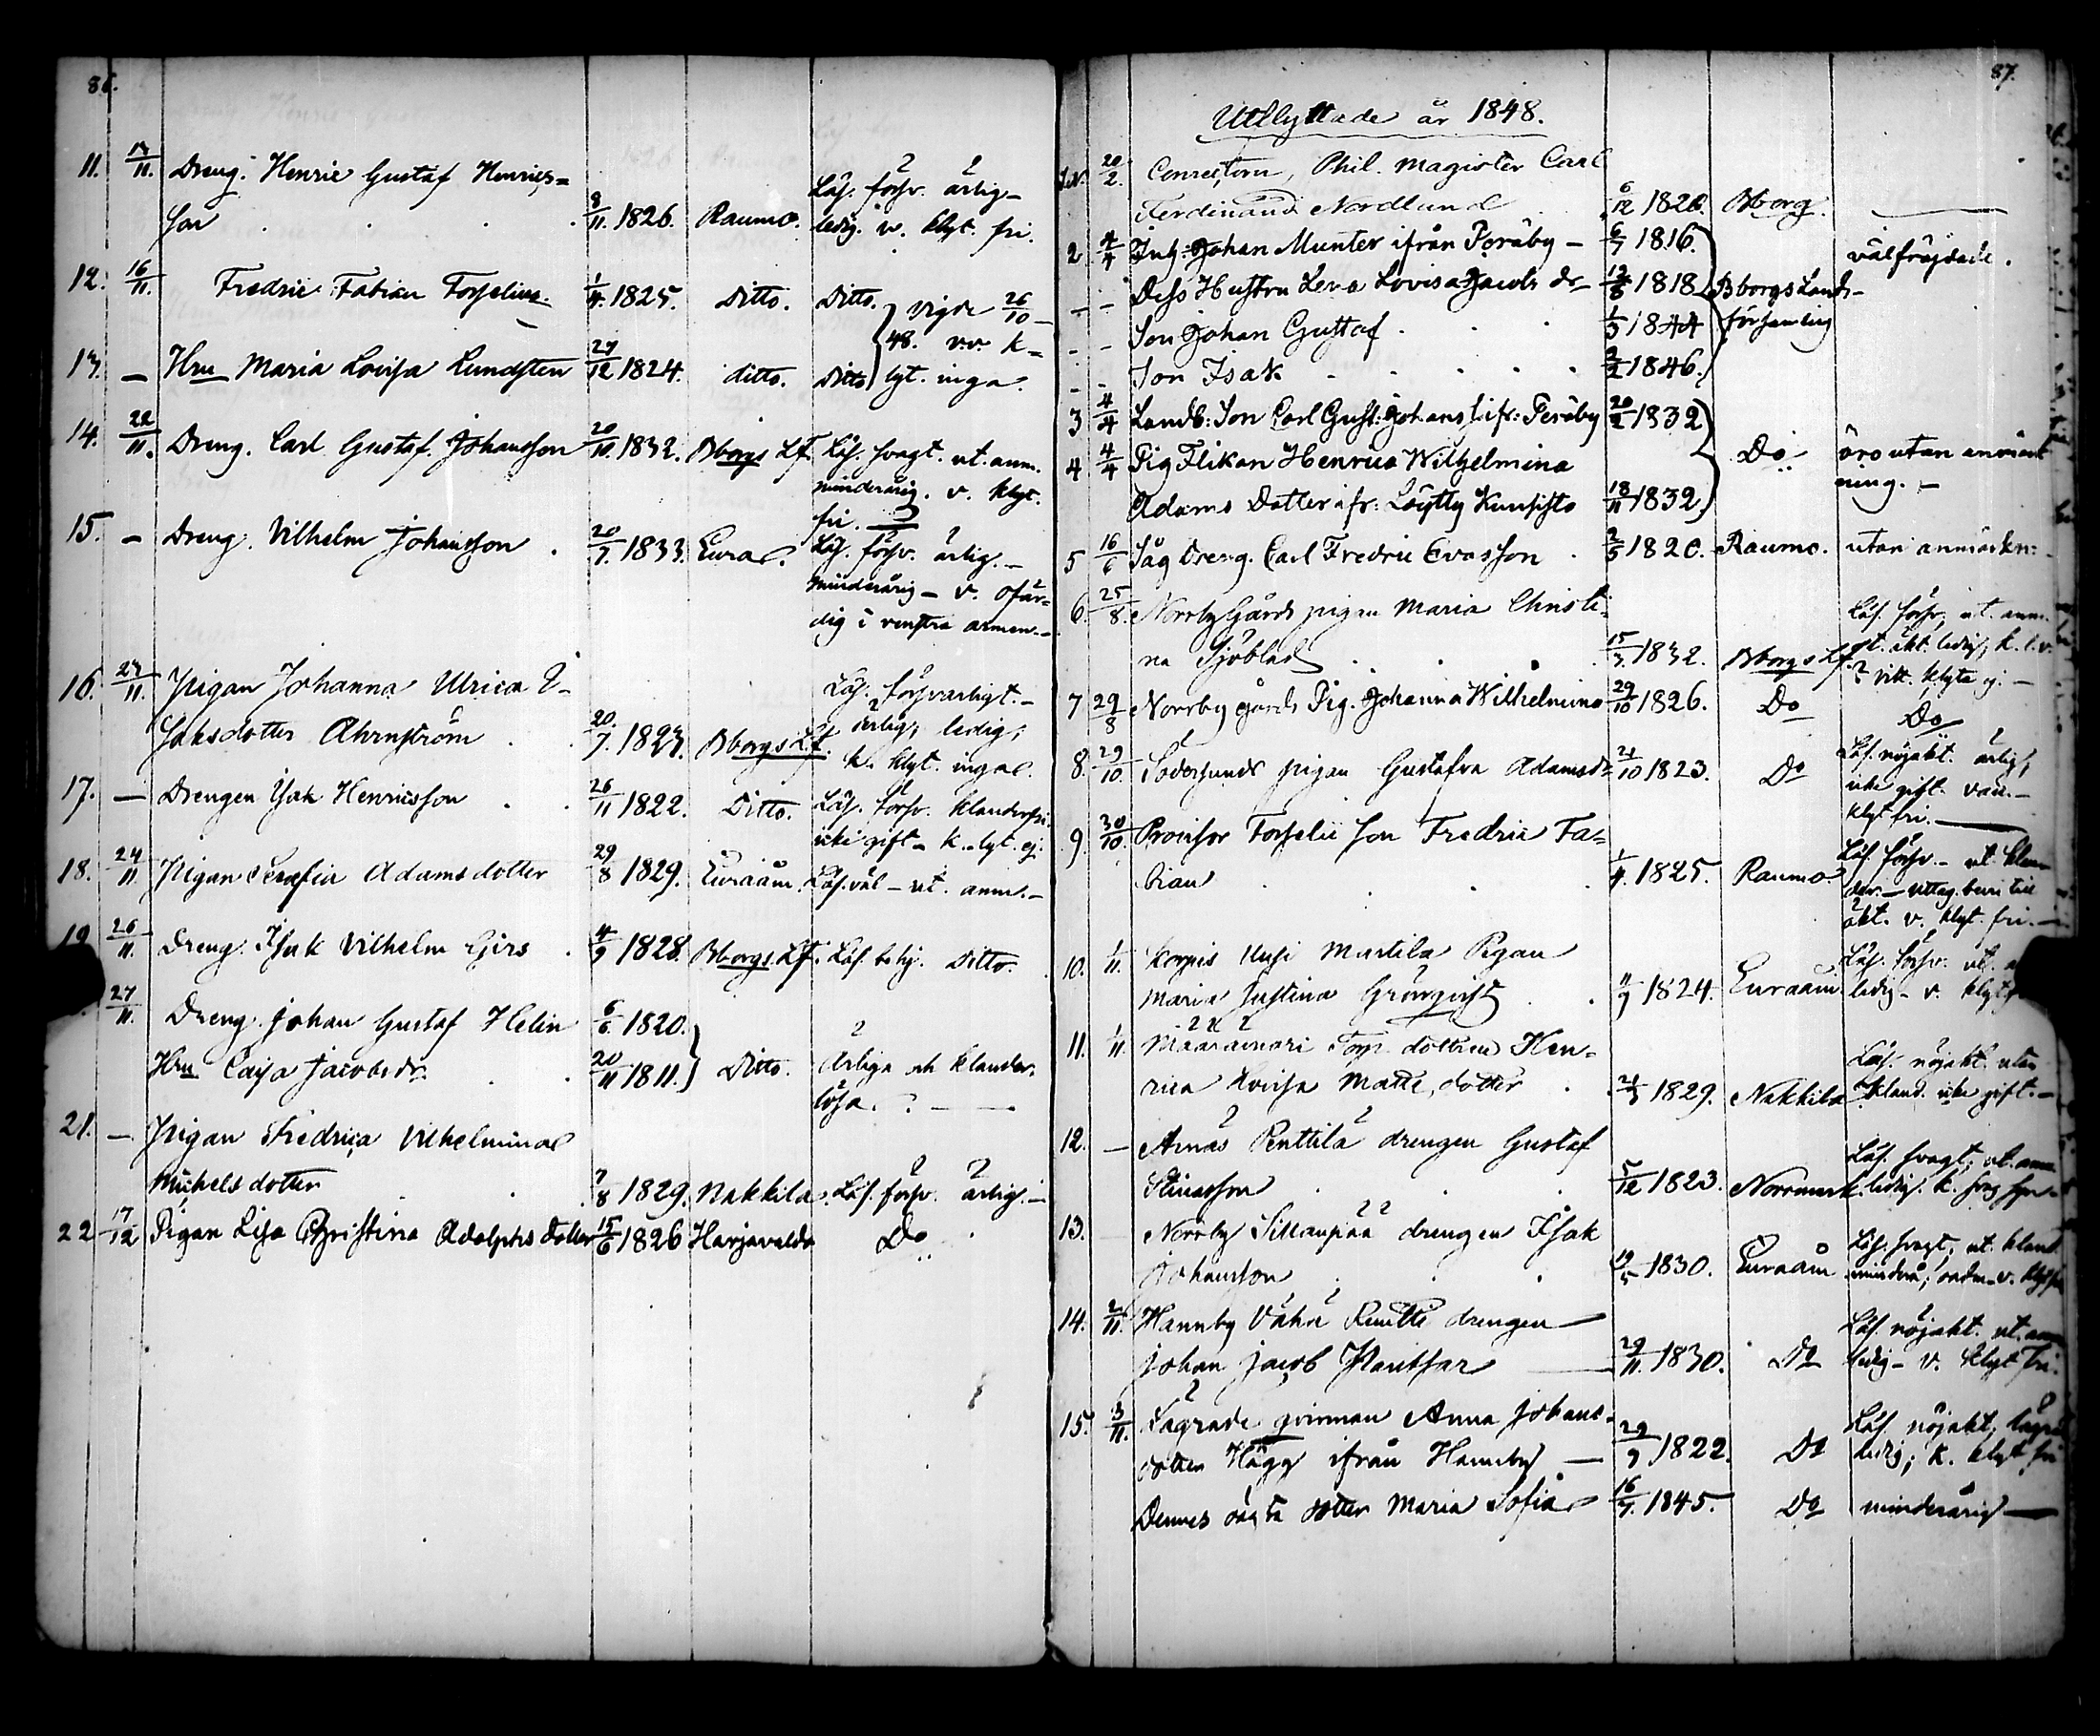 86.
11. 13/11. Dreng. Henric Gustaf Henrics=
son 8/11. 1826. Raumo. Läs. försv. ärlig –
ledig. v. klyt. fri.
12. 16/11. Fredric Fabian Forselius 1/4. 1825. Ditto. Ditto. vigde 26/10
48. v.v. k=
13. – Hru Maria Lovisa Lundsten 27/12 1824. ditto. Ditto lyt. inga.
14. 22/11. Dreng. Carl Gustaf Johansson 20/10. 1832. Bborgs Lf. Läs. svagt. ut. anm.
minderårig. v. klyt.
fri.
15. – Dreng. Vilhelm Johansson 20/7. 1833. Eura. Läs. försv. ärlig. –
minderårig – v. ofär=
dig i venstra armen. –
16. 23/11. Pigan Johanna Ulrica I-
saksdotter Ahrnström 20/7. 1823. Bborgs Lf. Läs. försvarligt. –
ärlig, ledig,
k. klyt. inga.
17. – Drengen Isak Henricsson 26/11 1822. Ditto. Läs. försv. klanderfri.
icke gift – k. lyt. ej.
18. 24/11 Pigan Serafia Adamsdotter 29/8 1829. Euraåm. Läs. väl – ut. anm. –
19. 26/11. Dreng. Isak Vilhelm Girs 4/9 1828. Bborgs. Lf. Läs. behj. Ditto.
27/11. Dreng. Johan Gustaf Helin 6/6. 1820.
Hru Caisa Jacobsdr 20/11 1811. Ditto. Ärliga och klander-
lösa. –
21. – Pigan Fredrica Vilhelmina
Michelsdotter 7/8 1829. Nakkila. Läs. försv. ärlig. –
22 17/12 Pigan Lisa Christina Adolphs dotter 15/6 1826 Harjavalda Do
87.
Utflyttade år 1848.
20/2. Conrectorn, Phil. Magister Carl
Ferdinand Nordlund 6/12 1820. Bborg.
2 4/4 Inh: Johan Munter ifrån Toråby – 6/7 1816.
välfräjdade.
– – Dess Hustru Lena Lovisa Jacobs dr – 1818 Bborgs Lands-
– – Son Johan Gustaf 1/3 1844 församling
– – Son Isak 1846.
3 4/4 Landb: Son Carl Gust: Johanss ifr: Toråby 20/2 1832
4 4/4 Pig Flikan Henrica Wilhelmina Do äro utan anmärk
ning. –
Adams Dotter ifr: Löytty Kunsisto 18/11 1832
5 16/6 Såg Dreng. Carl Fredric Evasson 2/5 1820. Raumo. utan anmärkn:
6. 25/8. Norrby Gårds pigan Maria Christi-
na Sjöblad 15/3. 1832. Bborgs Lf. Läs. försv. ut. anm.
t. äkt. ledig, k. l. v.
vitt. klyta ej. –
7 29/8 Norrby gårds Pig. Johanna Wilhelmina 29/10 1826. Do Do
8. 29/10 Södersunds pigan Gustafva Adamsdr 21/10 1823. Do Läs. nöjakt. ärlig,
icke gift. vac. –
klyt fri.
9. 30/10 Provisor Forselii Son Fredric Fa=
bian 1/4. 1825. Raumo. Läs. försv. – ut. klan-
der. – uttag. bevis till
äkt. v. klyt. fri. –
10. 1/11. Korpis Uusi Martila Pigan
Maria Justina Grönqvist 11/9 1824. Euraåm. Läs. försv. ut.
ledig – v. klyt
11. 1/11. Torp. dottren Hen-
rica Lovisa Matts dotter 1829. Nakkila Läs. nöjakt. utan
kland. icke gift. –
12. – Arnäs Penttilä drengen Gustaf
Stinasson 5/12 1823. Norrmark. Läs. svagt; ut. anm.
ledig. k.
13. Norrby Sillanpää drengen Isak
Johansson 19/5 1830. Euraåm Läs. svagt, ut. kland.
minderå;
14. 2/11. Hannby Vähä Ruutti drengen
Johan Jacob 29/11. 1830. Do Läs. nöjakt. ut. anm
ledig – v. klyt fri.
15. 3/11. Lägrade qvinnan Anna Johans-
dotter Hägg ifrån Hannby – 29/9 1822. Do Läs. nöjakt; lägra
ledig; k. klyt fri
Dennes oägta dotter Maria Sofia 16/7. 1845. Do minderårig